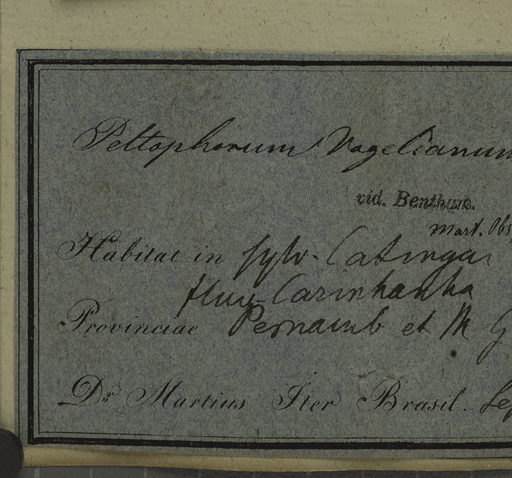 Peltophorum Vogelianum
vid. Benthum.
Mart. Obs
Habitat in sylv. Catingas
fluv. Carinhanha
Provinciae Pernamb et M G
Dr. Martius Iter Brasil. Sep